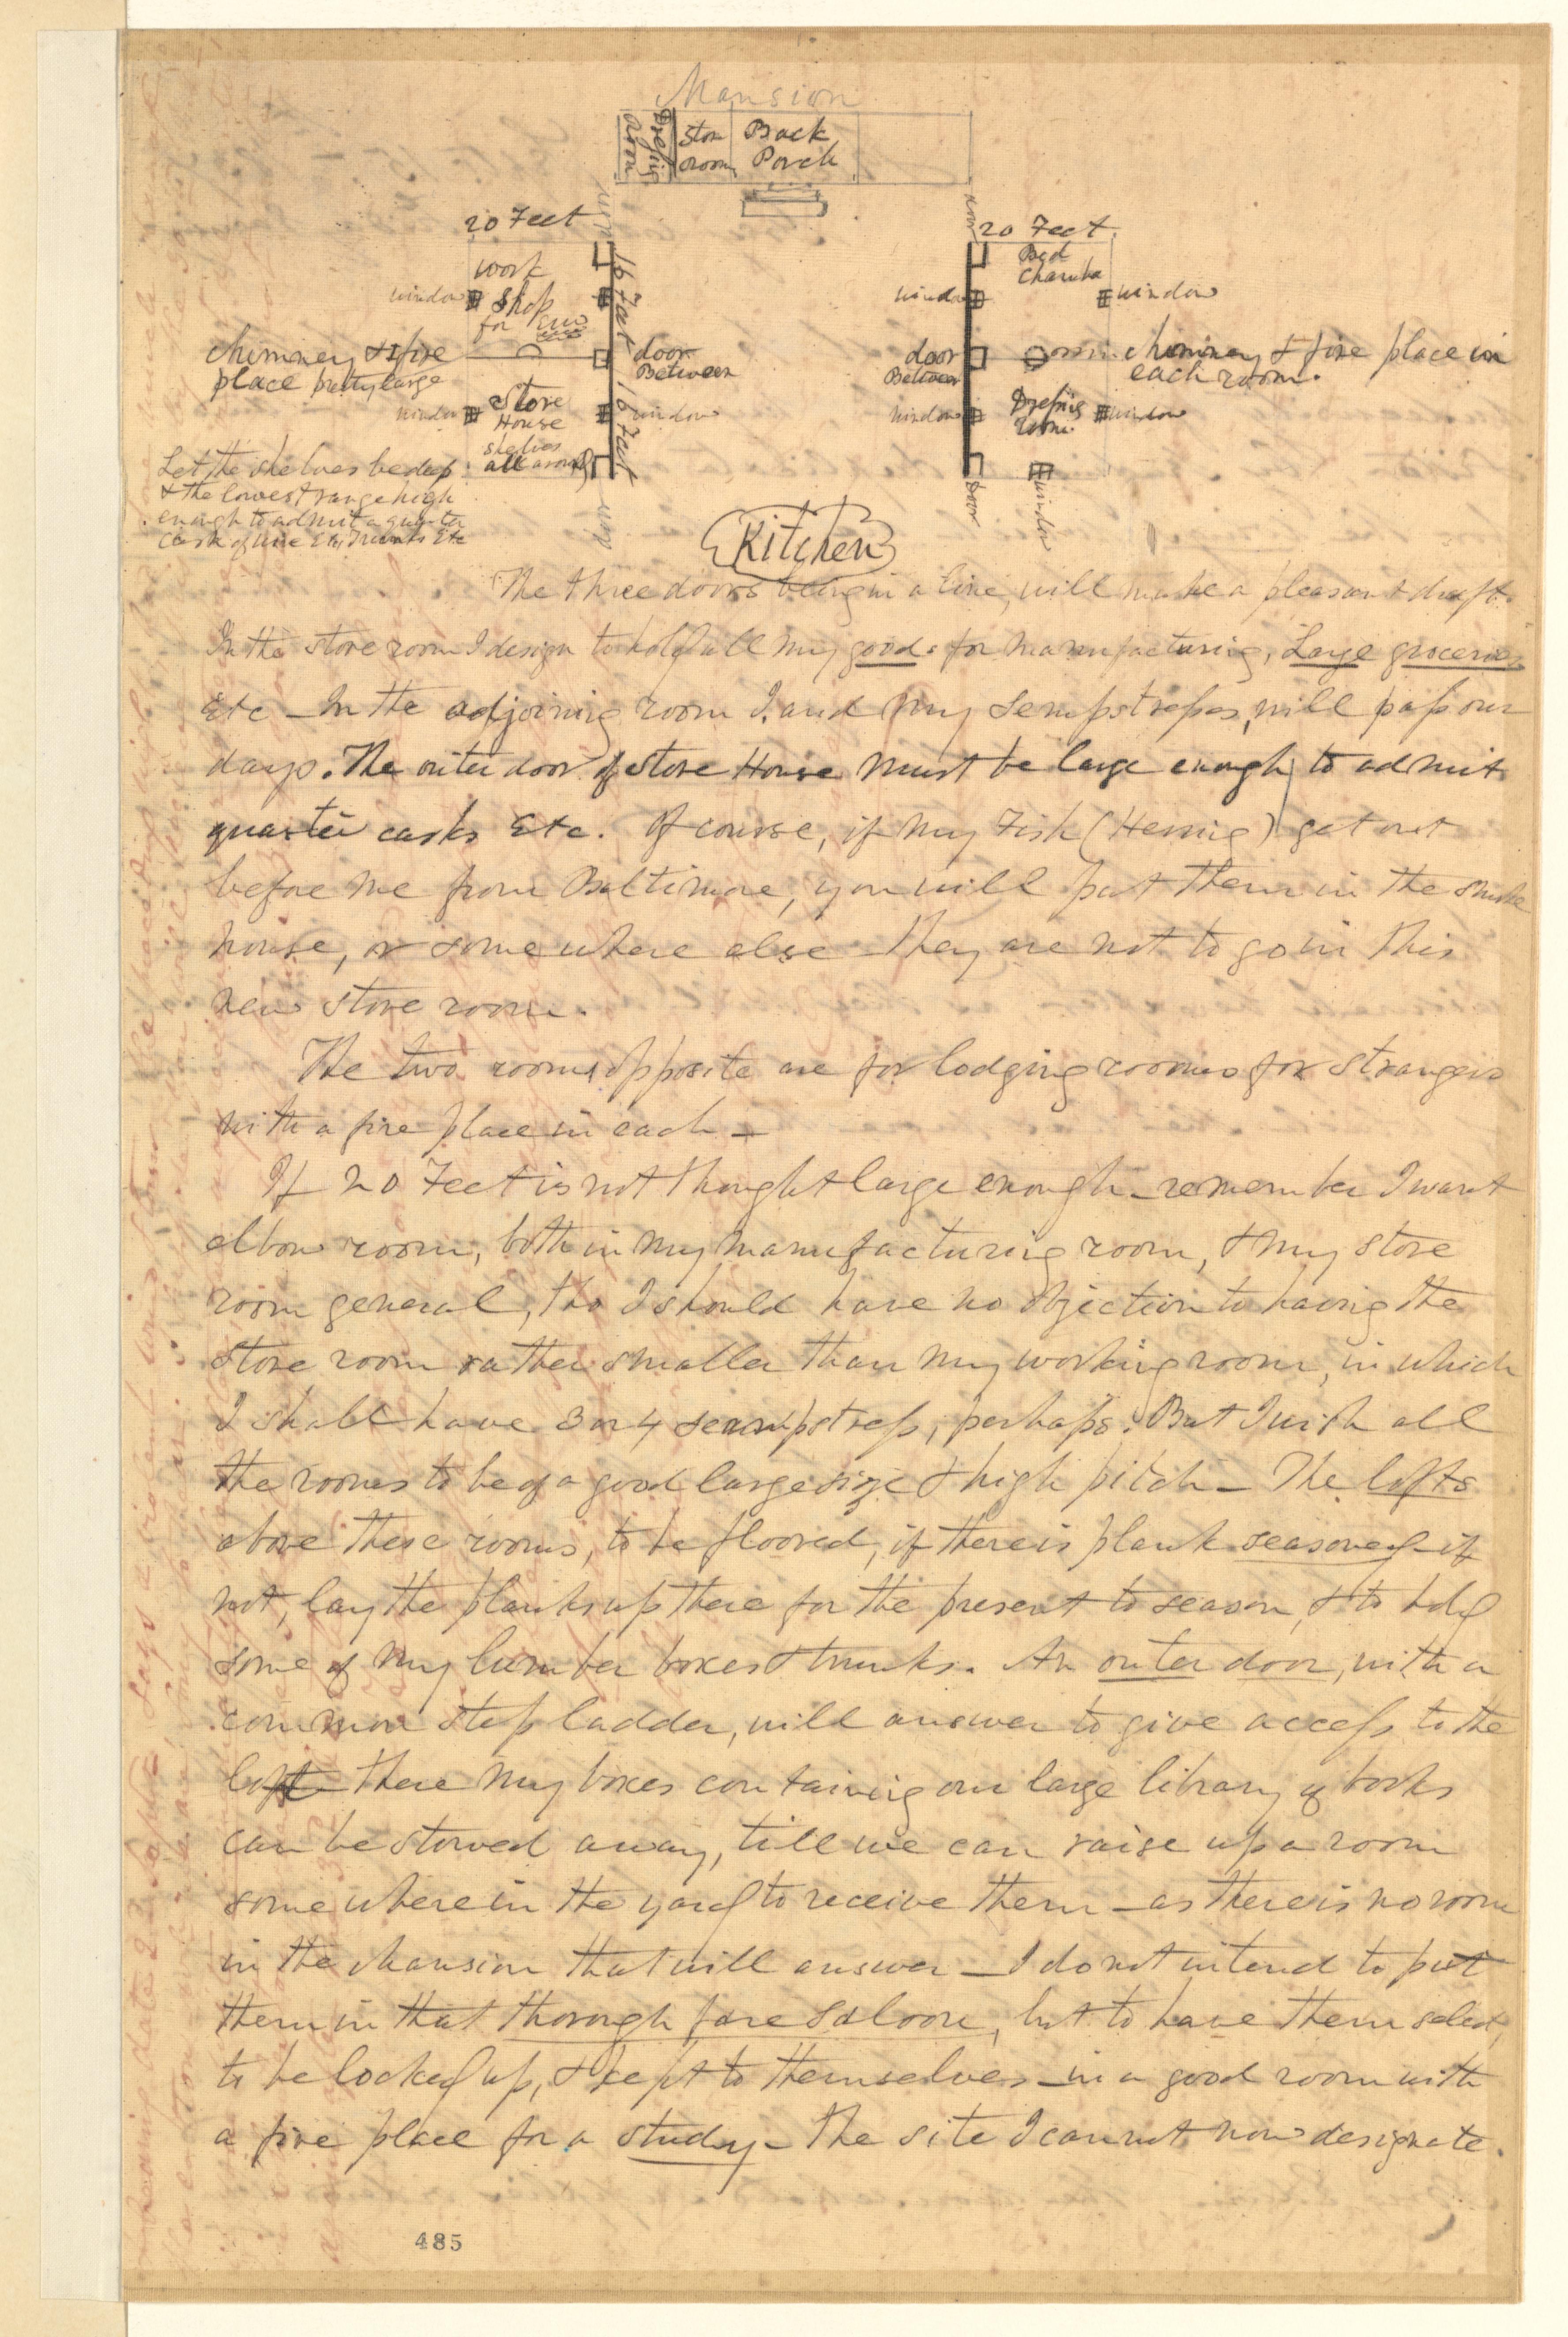 Mansion
Dressing room
Store room
Back Porch
20 Feet
20 Feet
work
Shop
for
16 Feet
Bed
Chamber
window
window
window
chimney & fire
place pretty large
door
Between
door
Between
chimney & fire place in
each room.
window
Store
House
shelves
all around
16 Feet
window
window
Dressing
room
window
Let the shelves be deep
& the lowest range high
enough to admit a quarter
cask of wine Etc, Trunks Etc
door
door
window
Kitchen
The three doors being in a line, will make a pleasant draft.
In the store room I design to hold all my goods for manufacturing, Large groceries
Etc – In the adjoining room I and my sempstresses, will pass our
days. The outer door of Store House must be large enough to admit
quarter casks Etc. Of course, if my Fish (Herring) get out
before me from Baltimore, you will put them in the smoke
house, or some where else – they are not to go in this
new store room.
The two rooms opposite are for lodging rooms for strangers
with a fire place in each –
If 20 Feet is not thought large enough – remember I want
elbow room, both in my manufacturing room, & my store
room general, tho I should have no objection to having the
store room rather smaller than my working room, in which
I shall have 3 or 4 seampstress, perhaps. But I wish all
the rooms to be of a good large size & high pitch – The lofts
above these rooms, to be floored, if there is plank seasoned – if
not, lay the planks up there for the present to season, & to hold
some of my lumber boxes & trunks. An outer door, with a
common step ladder, will answer to give access to the
loft – there my boxes containing our large library of books
can be stowed away, till we can raise up a room
some where in the yard to receive them – as there is no room
in the Mansion that will answer – I do not intend to put
them in that thorough fare Saloon, but to have them select,
to be locked up, & kept to themselves – in a good room with
a fire place for a study – The site I can not now designate.
485